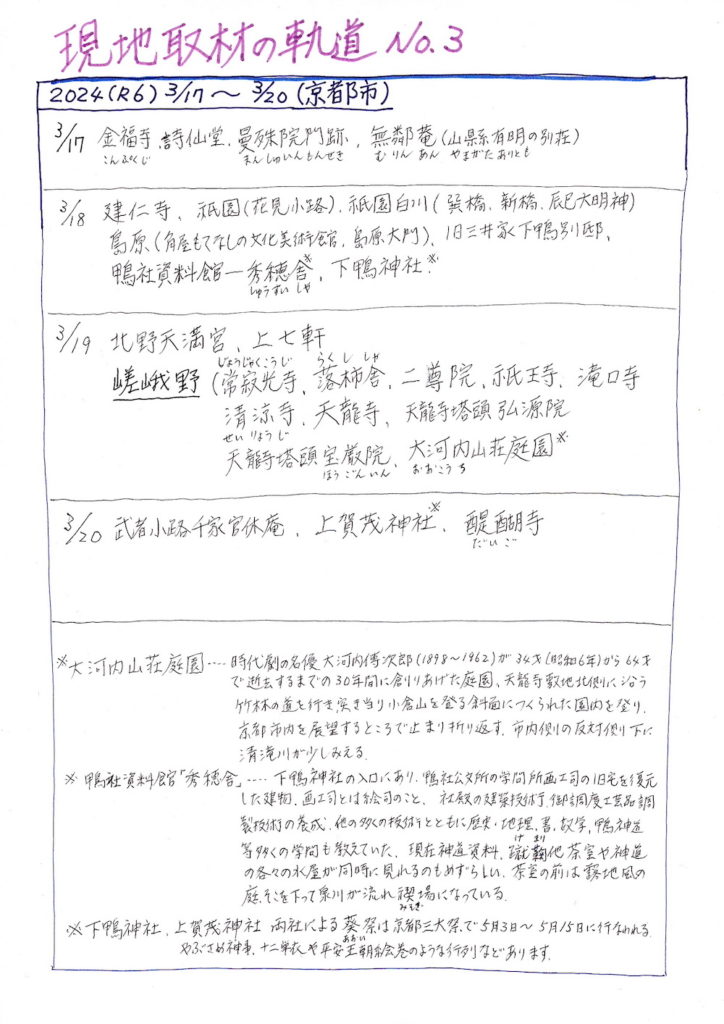 現地取材の軌道 No.3
2024(R6) 3/17 〜 3/20 (京都市)
3/17 金福寺、詩仙堂、曼殊院門跡、無鄰菴(山県有朋の別荘)
こんぷくじ まんしゅいんもんぜき むりんあん やまがたありとも
3/18 建仁寺、祇園(花見小路)、祇園白川(巽橋、新橋、辰巳大明神)
島原(角屋もてなしの文化美術館、島原大門)、旧三井家下鴨別邸、
鴨社資料館―秀穂舎※、下鴨神社※
しゅうすいしゃ
3/19 北野天満宮、上七軒
じょうじゃくこうじ らくししゃ
嵯峨野(常寂光寺、落柿舎、二尊院、祇王寺、滝口寺
清涼寺、天龍寺、天龍寺塔頭弘源院
せいりょうじ
天龍寺塔頭宝厳院、大河内山荘庭園※
ほうごんいん おおこうち
3/20 武者小路千家官休庵、上賀茂神社※、醍醐寺
だいご
※大河内山荘庭園‥‥時代劇の名優大河内傳次郎(1898〜1962)が34才(昭和6年)から64才
で逝去するまでの30年間に創りあげた庭園、天龍寺敷地北側に沿う
竹林の道を行き突き当り小倉山を登る斜面につくられた園内を登り、
京都市内を展望するところで止まり折り返す。市内側の反対側下に
清滝川が少しみえる。
※鴨社資料館「秀穂舎」‥‥下鴨神社の入口にあり、鴨社公文所の学問所画工司の旧宅を復元
した建物。画工司とは絵司のこと、社殿の建築技術、御調度工芸品調
製技術の養成、他の多くの技術とともに歴史・地理、書、数学、鴨神道
けまり
等多くの学問も教えていた、現在神道資料、蹴鞠他茶室や神道
の各々の水屋が同時に見れるのもめずらしい、茶室の前は露地風の
庭、そこを下って泉川が流れ禊場になっている。
みそぎ
※下鴨神社、上賀茂神社 両社による葵祭は京都三大祭で5月3日〜5月15日に行なわれる
あおい
やぶさめ神事、十二単衣や平安王朝絵巻のような行列などあります。